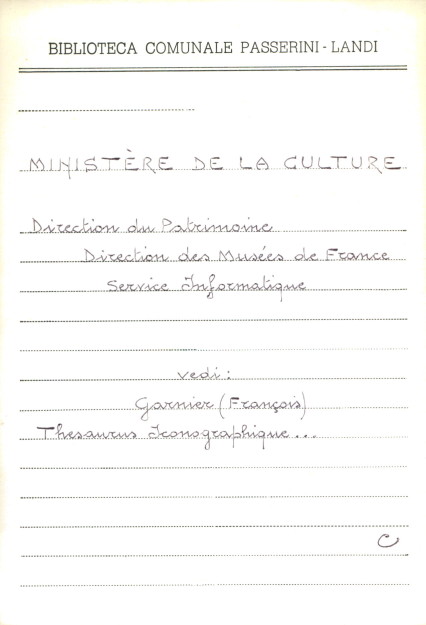 BIBLIOTECA COMUNALE PASSERINI - LANDI
MINISTÈRE DE LA CULTURE
Direction du Patrimoine
Direction des Musées de France
Service Informatique
vedi:
Garnier (François)
Thesaurus Iconographique...
C